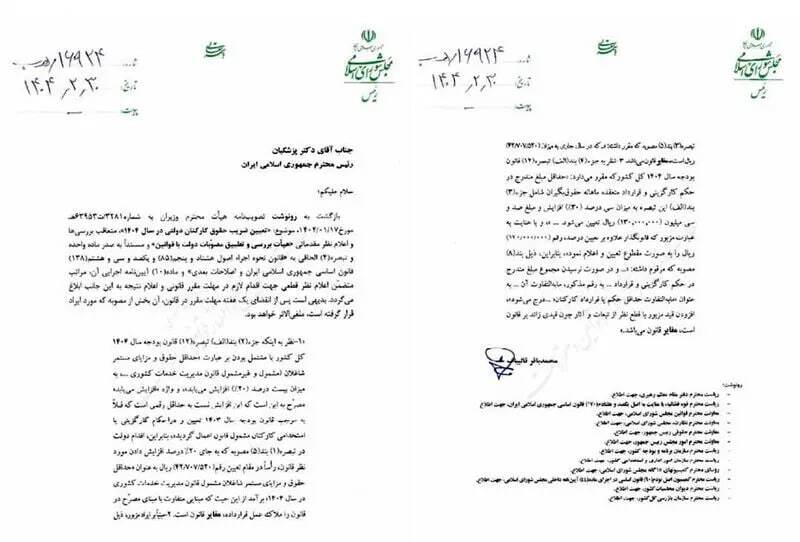 جمهوری اسلامی ایران
مجلس شورای اسلامی
رئیس
۱۶۹۲۴
تاریخ: ۱۴۰۴/۲/۳۰
پیوست:
جناب آقای دکتر پزشکیان
رئیس محترم جمهوری اسلامی ایران
سلام علیکم؛
بازگشت به رونوشت تصویب‌نامه هیأت محترم وزیران به شماره ۳۲۸۱/ت۶۳۹۵۳هـ
مورخ ۱۴۰۴/۰۱/۱۷، موضوع: «تعیین ضریب حقوق کارکنان دولتی در سال ۱۴۰۴»، متعاقب بررسی‌ها
و اعلام نظر مقدماتی «هیأت بررسی و تطبیق مصوبات دولت با قوانین» و مستنداً به صدر ماده واحده
و تبصره(۴) الحاقی به «قانون نحوه اجراء اصول هشتاد و پنجم(۸۵) و یکصد و سی و هشتم(۱۳۸)
قانون اساسی جمهوری اسلامی ایران و اصلاحات بعدی» و ماده(۱۰) آیین‌نامه اجرایی آن، مراتب
متضمن اعلام نظر قطعی جهت اقدام لازم در مهلت مقرر قانونی و اعلام نتیجه به این جانب ابلاغ
می‌گردد. بدیهی است پس از انقضای یک هفته مهلت مقرر در قانون، آن بخش از مصوبه که مورد ایراد
قرار گرفته است، ملغی‌الاثر خواهد بود.
«۱- نظر به اینکه جزء(۲) بند(الف) تبصره(۱۲) قانون بودجه سال ۱۴۰۴
کل کشور با مشتمل بودن بر عبارت «حداقل حقوق و مزایای مستمر
شاغلان (مشمول و غیرمشمول قانون مدیریت خدمات کشوری ... به
میزان بیست درصد (۲۰٪) افزایش می‌یابد»، و واژه «افزایش می‌یابد»
مصرّح به این است که این افزایش نسبت به حداقل رقمی است که قبلاً
به موجب قانون بودجه سال ۱۴۰۳ تعیین و در احکام کارگزینی یا
استخدامی کارکنان مشمول قانون اعمال گردیده، بنابراین، اقدام دولت
در تبصره(۱) بند(۵) مصوبه که به جای ۲۰٪ درصد افزایش دادن مورد
نظر قانون، رأساً در مقام تعیین رقم(۴۲/۷۰۷/۵۲۰) ریال به عنوان «حداقل
حقوق و مزایای مستمر شاغلان مشمول قانون مدیریت خدمات کشوری
در سال ۱۴۰۴» برآمد از این حیث که مبنایی متفاوت با مبنای مصرّح در
قانون را ملاک عمل قرار داده، مغایر قانون است. ۲- مبنیاً بر ایراد مزبور، ذیل
جمهوری اسلامی ایران
مجلس شورای اسلامی
رئیس
۱۶۹۲۴
تاریخ: ۱۴۰۴/۲/۳۰
پیوست:
تبصره(۳) بند(۵) مصوبه که مقرر داشته: «... که در سال جاری به میزان (۴۲/۷۰۷/۵۲۰)
ریال است» مغایر قانون می‌باشد. ۳- نظر به جزء(۴) بند(الف) تبصره(۱۲) قانون
بودجه سال ۱۴۰۴ کل کشور که مقرر می‌دارد: «حداقل مبلغ مندرج در
حکم کارگزینی و قرارداد منعقده ماهانه حقوق‌بگیران شامل جزء(۳)
بند(الف) این تبصره به میزان سی درصد (۳۰٪) افزایش و مبلغ صد و
سی میلیون (۱۳۰،۰۰۰،۰۰۰) ریال تعیین می‌شود. ...»، و با عنایت به
عبارت مزبور که قانونگذار علاوه بر تعیین درصد، رقم (۱۳۰/۰۰۰/۰۰۰)
ریال را به صورت مقطوع تعیین و اعلام نمود، بنابراین، ذیل بند(۸)
مصوبه که مرقوم داشته: «... و در صورت نرسیدن مجموع مبلغ مندرج
در حکم کارگزینی و قرارداد ... به رقم مذکور، مابه‌التفاوت آن ... به
عنوان «مابه‌التفاوت حداقل حکم یا قرارداد کارکنان» ... درج می‌شود»،
افزودن قید مزبور با قطع نظر از تبعات و آثار چون قیدی زائد بر قانون
است، مغایر قانون می‌باشد.»
محمدباقر قالیباف
رونوشت:
- ریاست محترم دفتر مقام معظم رهبری، جهت اطلاع.
- ریاست محترم قوه قضائیه با عنایت به اصل یکصد و هفتادم(۱۷۰) قانون اساسی جمهوری اسلامی ایران، جهت اطلاع.
- معاونت محترم قوانین مجلس شورای اسلامی، جهت اطلاع.
- معاونت محترم نظارت مجلس شورای اسلامی، جهت اطلاع.
- معاونت محترم حقوقی رئیس جمهور، جهت اطلاع.
- معاونت محترم امور مجلس رئیس جمهور، جهت اطلاع.
- ریاست محترم سازمان برنامه و بودجه کشور، جهت اطلاع.
- ریاست محترم سازمان امور اداری و استخدامی کشور، جهت اطلاع.
- رؤسای محترم کمیسیونهای مجلس شورای اسلامی، جهت اطلاع.
- ریاست محترم کمیسیون اصل نودم(۹۰) قانون اساسی در اجرای ماده آیین‌نامه داخلی مجلس شورای اسلامی، جهت اطلاع.
- ریاست محترم دیوان محاسبات کشور، جهت اطلاع.
- ریاست محترم سازمان بازرسی کل کشور، جهت اطلاع.